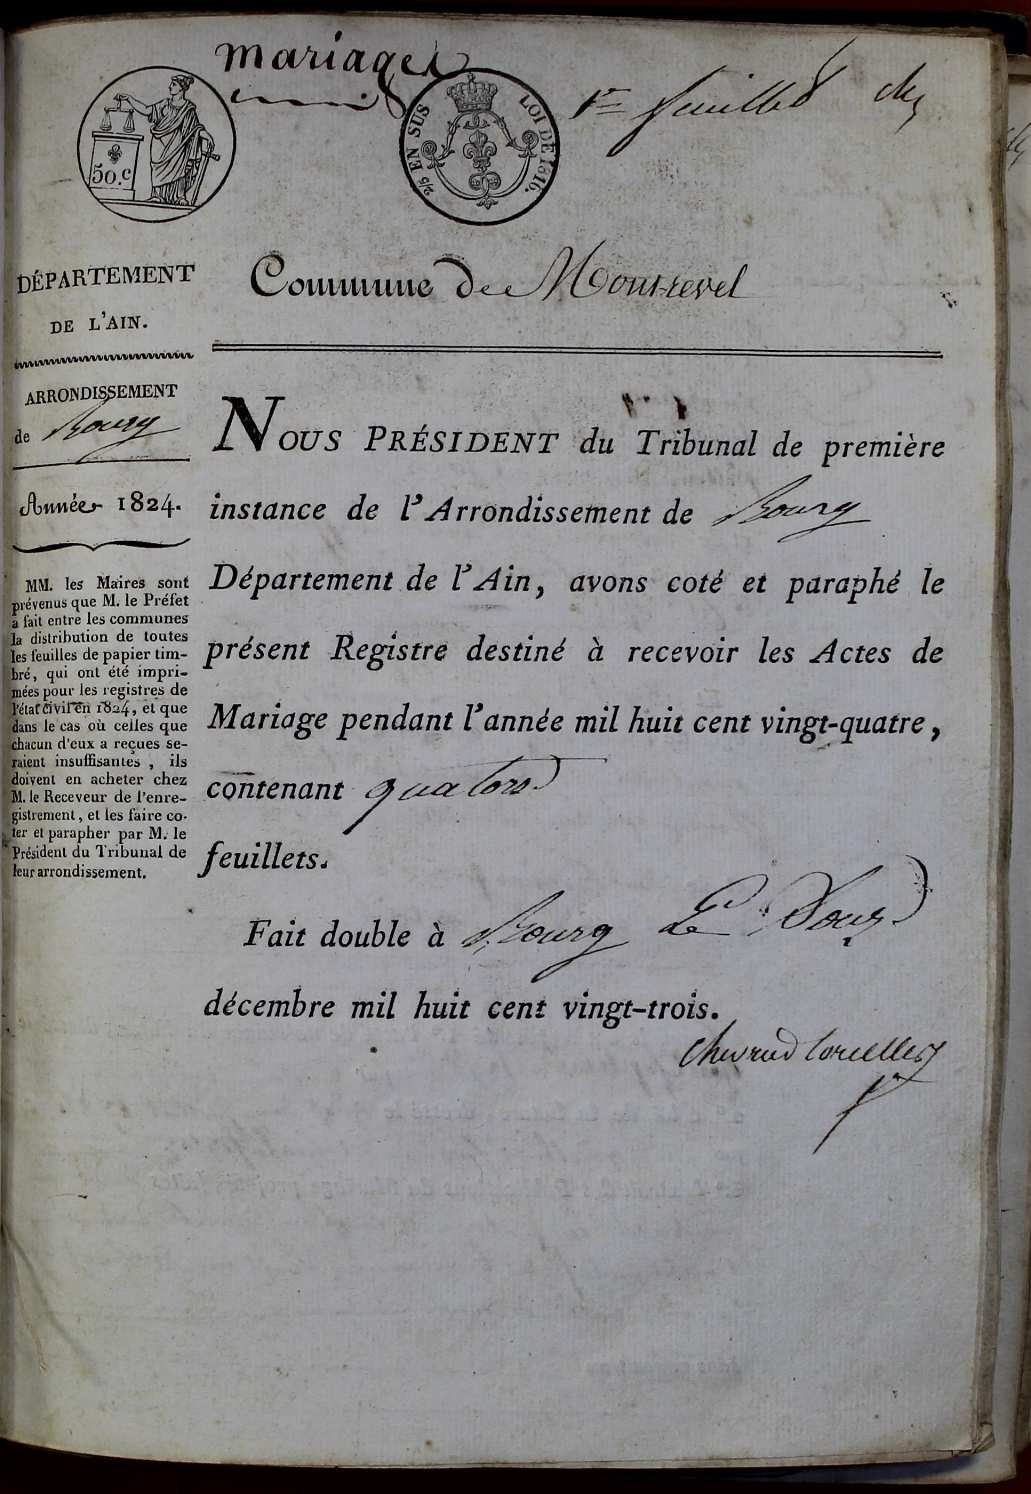 mariages
50.c
2/5 EN SUS
LOI DE 1816.
1er feuillet
DÉPARTEMENT
DE L'AIN.
Commune de Montrevel
ARRONDISSEMENT
de Bourg
Année 1824.
MM. les Maires sont
prévenus que M. le Préfet
a fait entre les communes
la distribution de toutes
les feuilles de papier tim-
bré, qui ont été impri-
mées pour les registres de
l'état civil en 1824, et que
dans le cas où celles que
chacun d'eux a reçues se-
raient insuffisantes, ils
doivent en acheter chez
M. le Receveur de l'enre-
gistrement, et les faire co-
ter et parapher par M. le
Président du Tribunal de
leur arrondissement.
NOUS PRÉSIDENT du Tribunal de première
instance de l'Arrondissement de Bourg
Département de l'Ain, avons coté et paraphé le
présent Registre destiné à recevoir les Actes de
Mariage pendant l'année mil huit cent vingt-quatre,
contenant quatorze
feuillets.
Fait double à Bourg Le Douze
décembre mil huit cent vingt-trois.